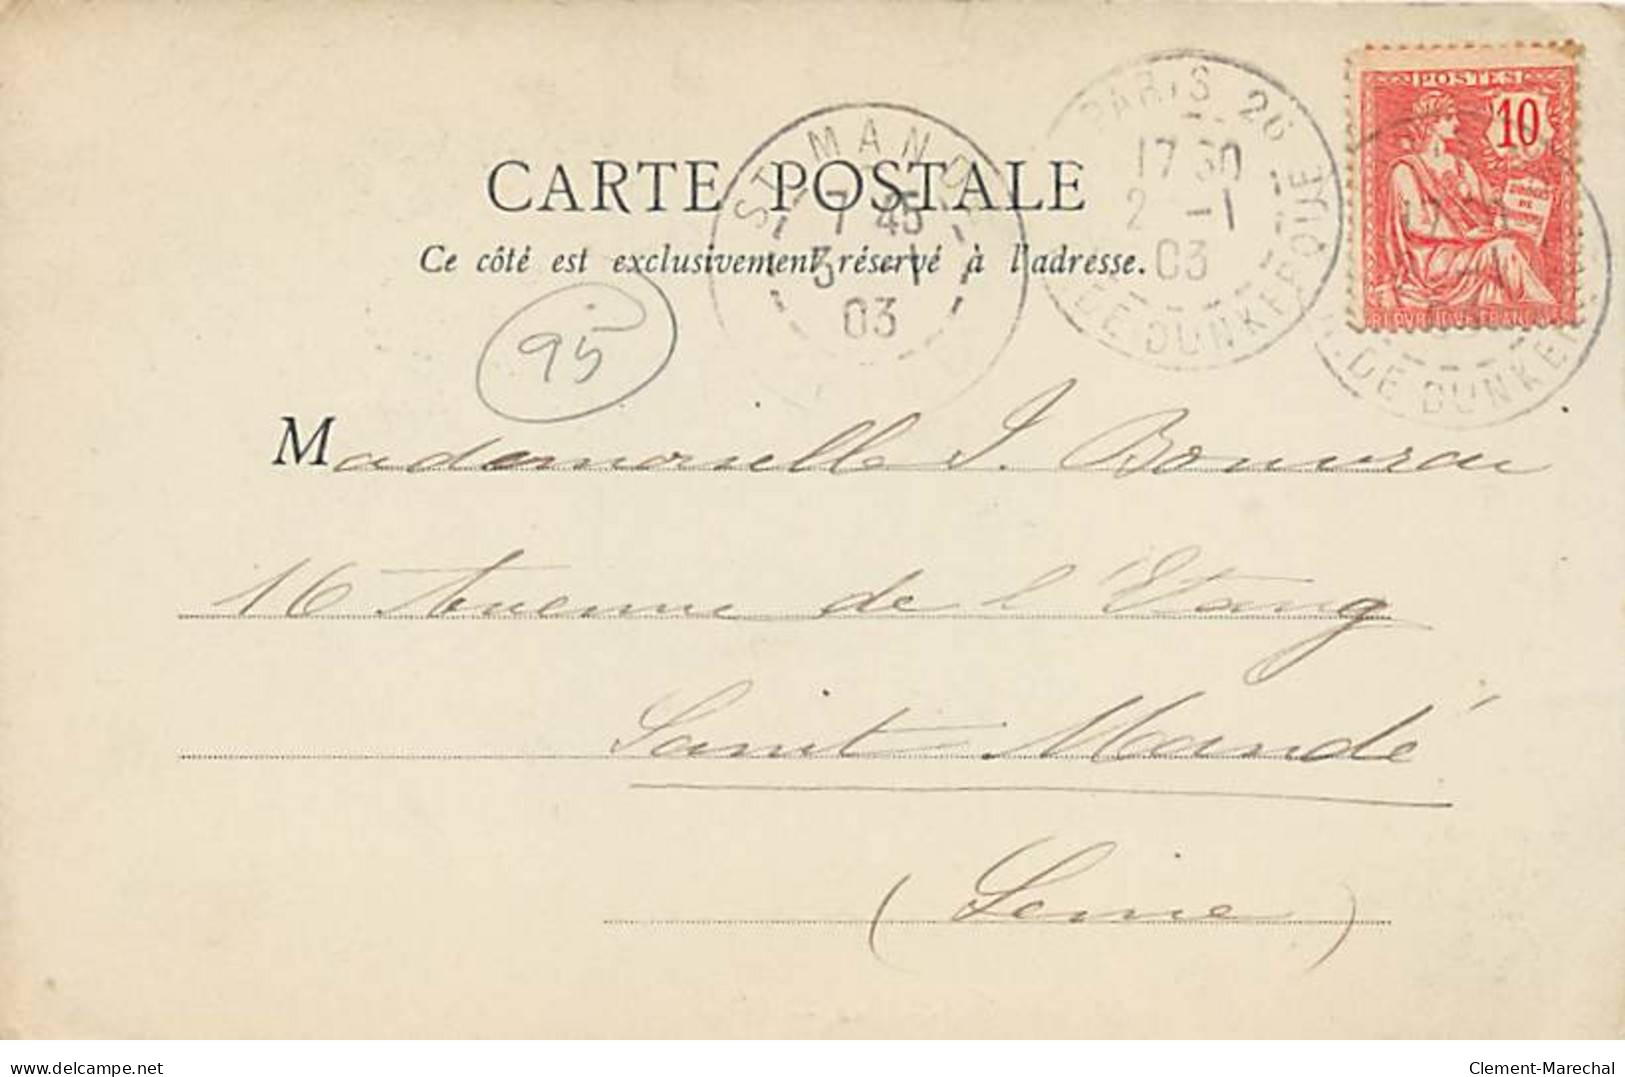 POSTES
10
RÉPUBLIQUE FRANÇAISE
PARIS 26
17 30
2 -1
03
R. DE DUNKERQUE
DE DUNKER
ST MANDÉ
7 45
3 -1
03
CARTE POSTALE
Ce côté est exclusivement réservé à l'adresse.
95
Mademoiselle J.
16 Avenue de l'Etang
Saint Mandé
(Seine)
delcampe.net
Clement-Marechal